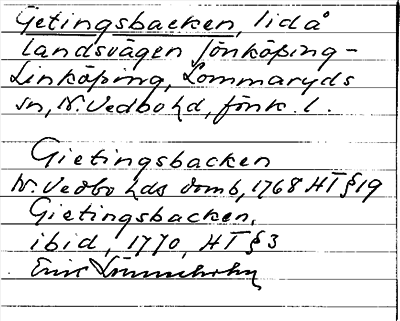 Getingsbacken, lid å
landsvägen Jönköping-
Linköping, Lommaryds
sn, N. Vedbo hd, Jönk. l.
Gietingsbacken
N. Vedbo hds domb, 1768 HT § 19
Gietingsbacken,
ibid, 1770, HT § 3
Eric